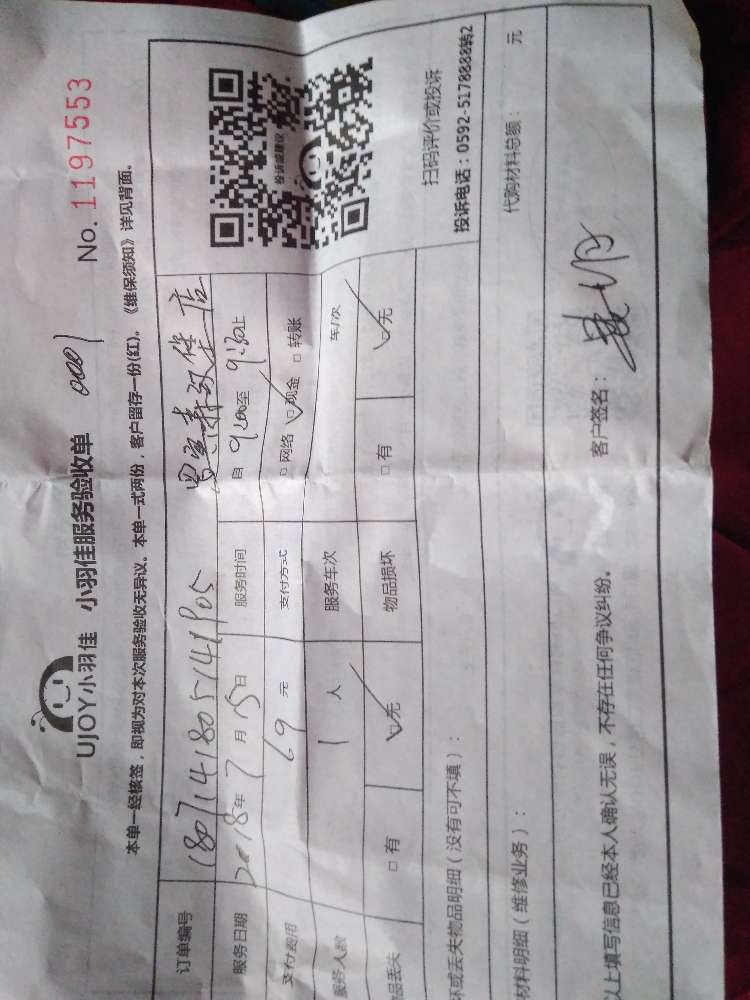 UJOY小羽佳 小羽佳服务验收单 0001 No. 1197553
本单一经核签，即视为对本次服务验收无异议。本单一式两份，客户留存一份(红)。《维保须知》详见背面。
订单编号 1807141805141905
服务日期 2018年7月15日 服务时间 自 9:00至 9:30止
支付费用 69元 支付方式 □ 网络 ☑ 现金 □ 转账
服务人数 1 人 服务车次 车/次
品丢失 □ 有 ☑ 无 物品损坏 □ 有 ☑ 无
投诉或建议
扫码评价或投诉
投诉电话：0592-5178888转2
坏或丢失物品明细（没有可不填）：
材料明细（维修业务）： 代购材料总额： 元
以上填写信息已经本人确认无误，不存在任何争议纠纷。 客户签名：